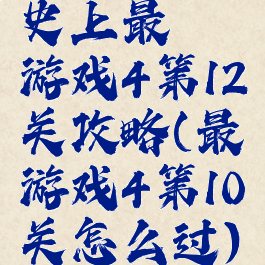 史上最
游戏4第12
关攻略(最
游戏4第10
关怎么过)